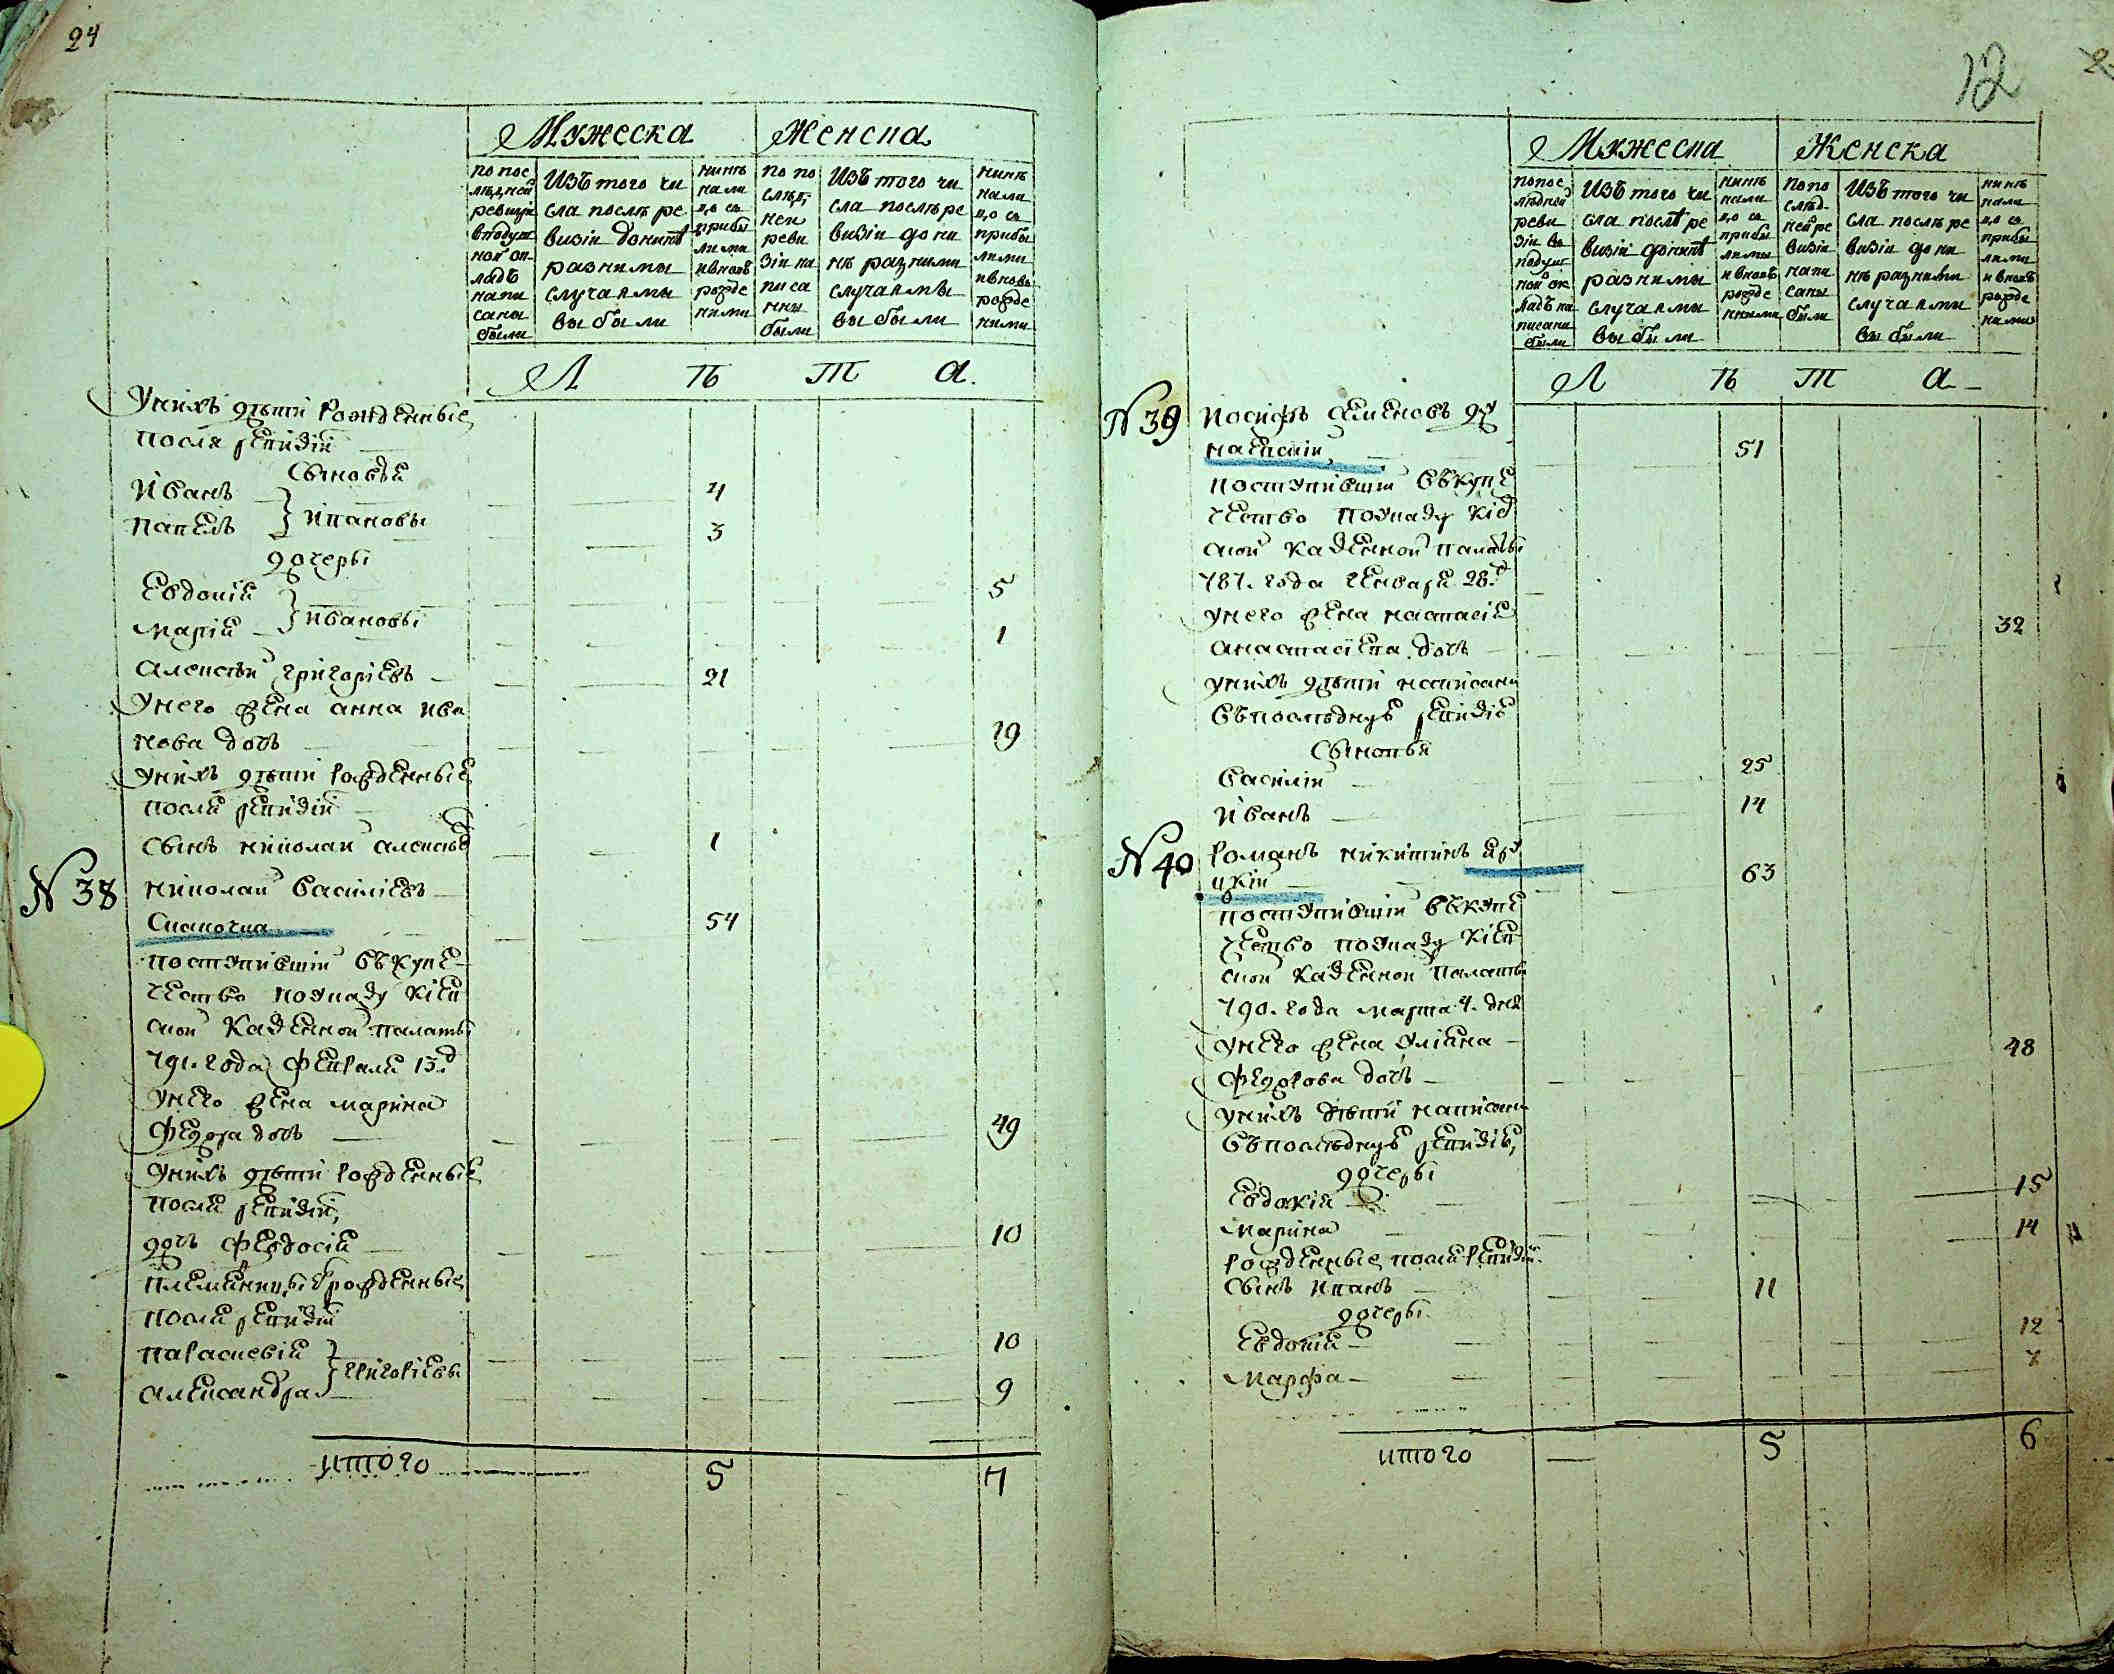 24
Мужеска Женска
по пос
лѣдней
ревизіи
в подуш
ной ок
ладъ
напи
саны
были
Изъ того чи
сла послѣ ре
визіи донинѣ
разними
случаями
выбыли
нинѣ
нали
цо съ
прибы
лими
ивновь
рожде
ними
по по
слѣд
ней
реви
зіи на
писа
нны
были
Изъ того чи
сла послѣ ре
визіи до ни
нѣ разними
случаямы
выбыли
нинѣ
нали
цо съ
прибы
лими
ивновь
рожде
ними
Л Ѣ Т А
Унихъ дѣти рожденные
после ревизіи
Сыновья
Иванъ 4
Павелъ } Ивановы 3
дочеры
Евдокія 5
Марія } Ивановы 1
Алексѣй Григоріевъ 21
Унего жена Анна Ива
нова дочь 19
Унихъ дѣти рожденные
после ревизіи
Сынъ Николай 1
N 38 Николай Василіевъ
54
поступившій въ купе
чество поуказу Кіев
ской казенной палаты
791. года Февраля 13. д
Унего жена Марина
Федора дочь 49
Унихъ дѣти рожденные
после ревизіи,
дочь Феодосія 10
племянницы рожденные
после ревизіи
Параскевія 10
Александра } Григоріевы 9
итого 5 7
12
Мужеска Женска
по пос
лѣдной
реви
зіи въ
подуш
ной ок
ладъ на
писани
были
Изъ того чи
сла послѣ ре
визіи донинѣ
разнимы
случаямы
выбыли
нинѣ
нали
цо съ
прибы
лимы
ивновь
рожде
нними
по по
слѣд
ней ре
визіи
напи
саны
были
Изъ того чи
сла послѣ ре
визіи до ни
нѣ разними
случаями
выбыли
нинѣ
нали
цо съ
прибы
лими
ивновь
рожде
ними
Л Ѣ Т А
N 39 Иосифъ Семеновъ
51
поступившій въ купе
чество поуказу Кіев
ской казенной палаты
787. года Генваря 28. д
Унего жена Настасія 32
Анастасіева дочь
Унихъ дѣти написани
въ последнѣ ревизіе
Сыновья
Василій 25
Иванъ 14
N 40 Романъ Никитинъ
63
поступившій въ купе
чество поуказу Кіев
ской казенной палаты
790. года Марта 4. дня
Унего жена Уліана 48
Федорова дочь
Унихъ дѣти написани
въ последнѣ ревизіе,
дочеры
Евдокія 15
Марина 14
рожденные после ревизіи
Сынъ Иванъ 11
дочеры
Евдокія 12
Марфа 7
итого 5 6